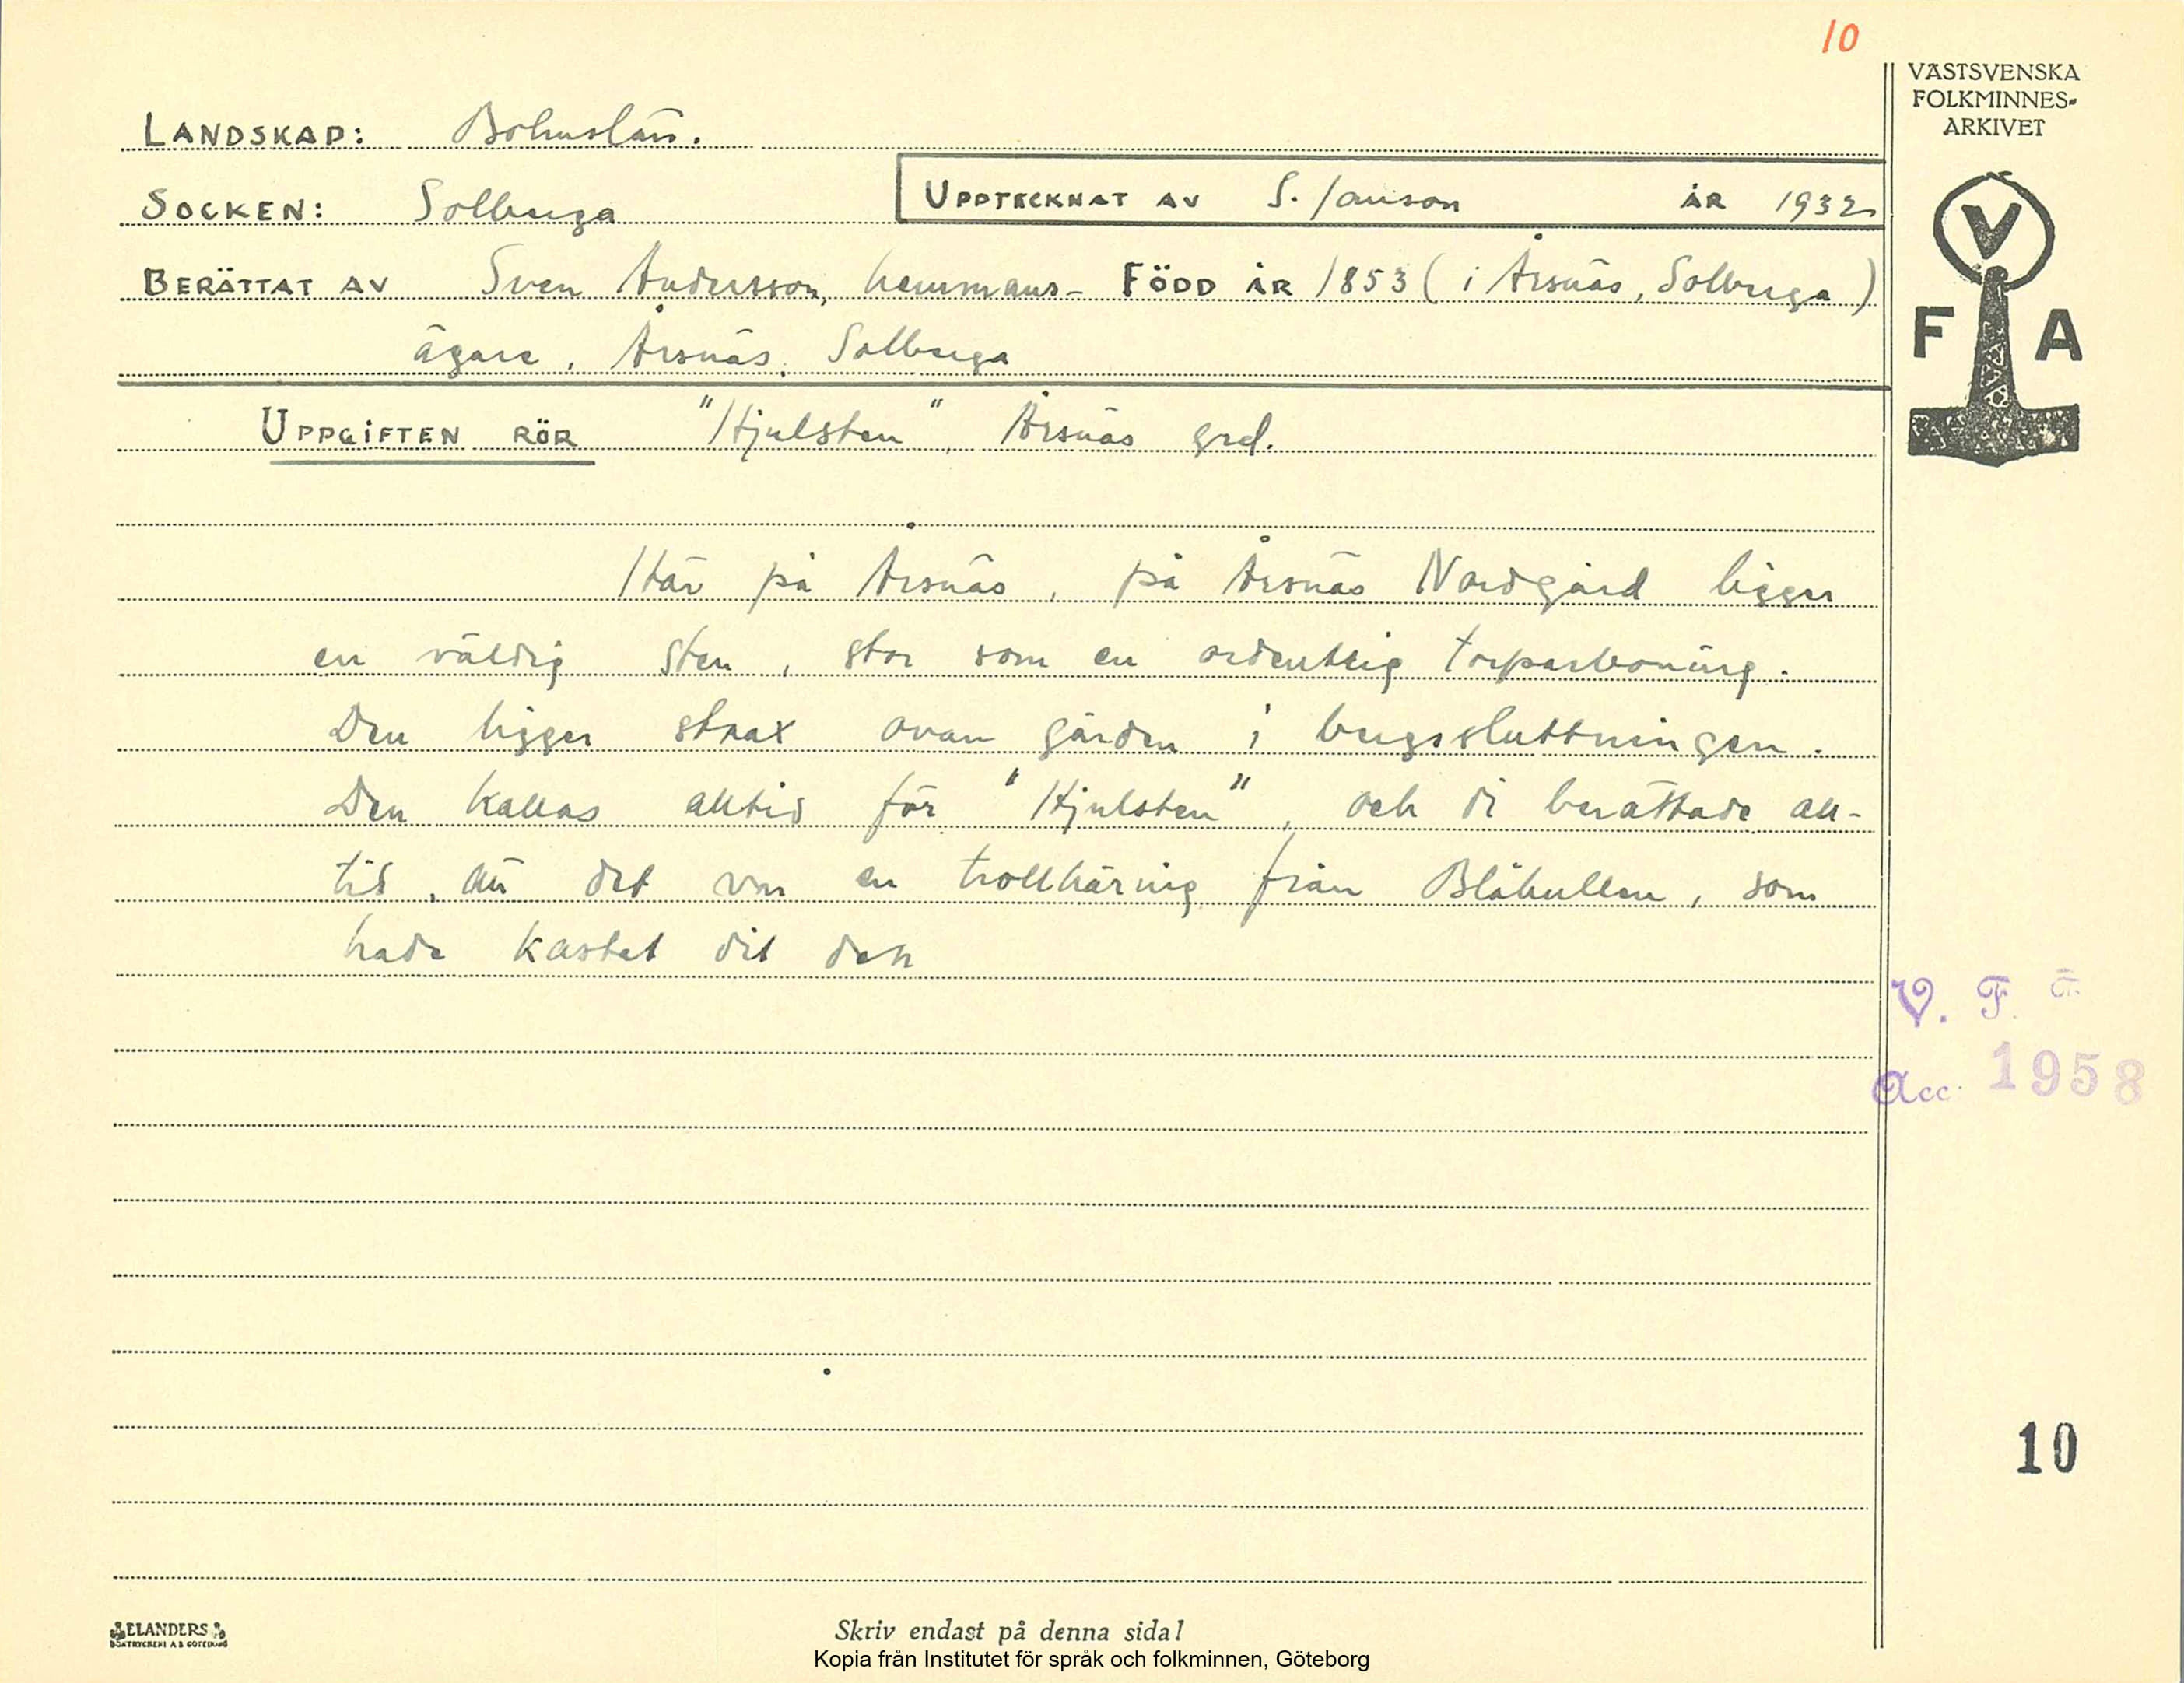 10
VÄSTSVENSKA
FOLKMINNES-
ARKIVET
LANDSKAP: Bohuslän.
SOCKEN: Solberga
UPPTECKNAT AV S. Janson ÅR 1932
BERÄTTAT AV Sven Andersson, hemmans- FÖDD ÅR 1853 (i Årsnäs, Solberga)
ägare, Årsnäs, Solberga
V
F A
UPPGIFTEN RÖR "Hjulsten", Årsnäs grd.
Här på Årsnäs, på Årsnäs Nordgård ligger
en väldig sten, stor som en ordentlig torparboning.
Den ligger strax ovan gården i bergssluttningen.
Den kallas alltid för "Hjulsten", och di berättade all-
tid, att det var en trollkäring från Blåkullen, som
hade kastat dit den
V. F.
Acc. 1958
10
ELANDERS
BOKTRYCKERI A B GÖTEBORG
Skriv endast på denna sida!
Kopia från Institutet för språk och folkminnen, Göteborg